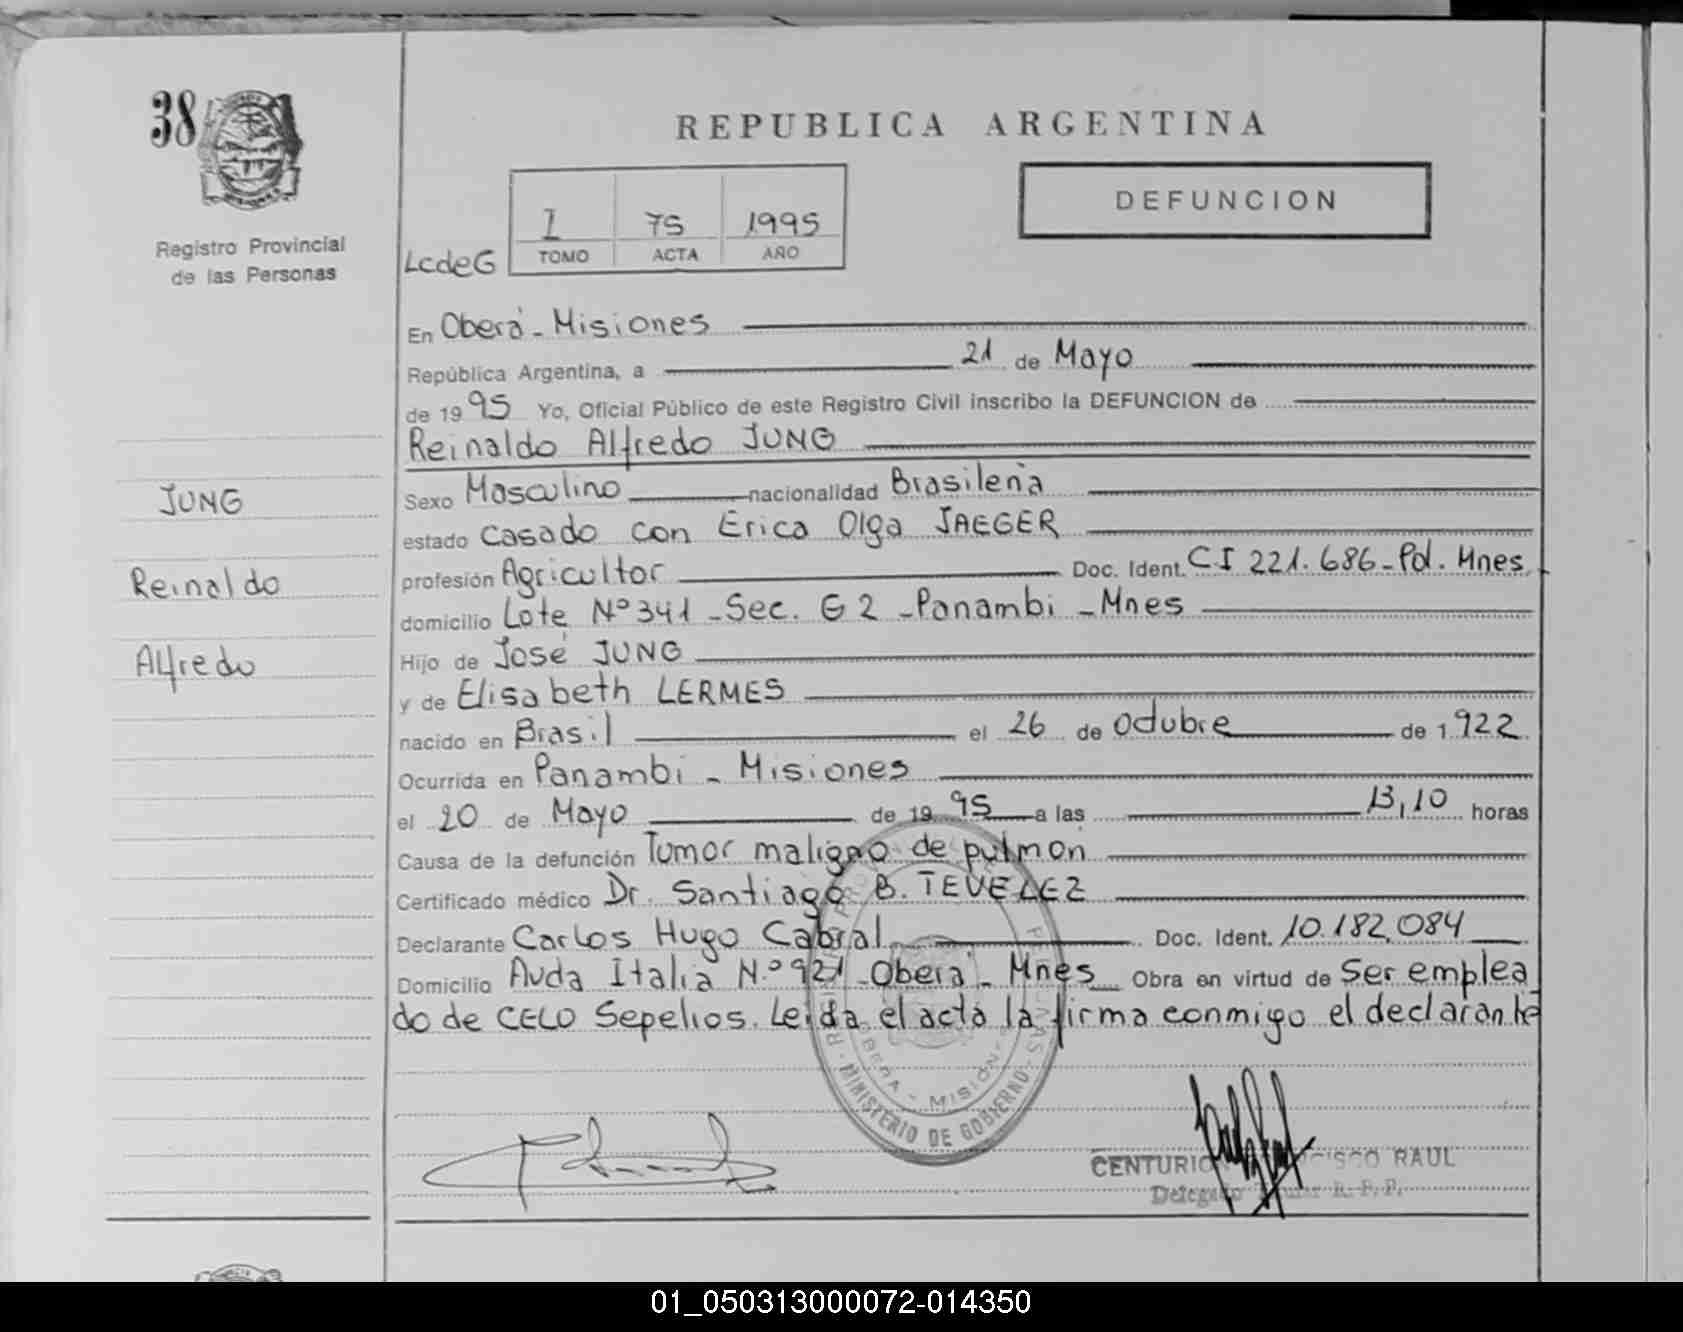 38
Registro Provincial
de las Personas
JUNG
Reinaldo
Alfredo
REPUBLICA ARGENTINA
DEFUNCION
I 75 1995
TOMO ACTA AÑO
LcdeG
En Oberá - Misiones
República Argentina, a 21 de Mayo
de 1995 Yo, Oficial Público de este Registro Civil inscribo la DEFUNCION de
Reinaldo Alfredo JUNG
Sexo Masculino nacionalidad Brasileña
estado casado con Erica Olga JAEGER
profesión Agricultor Doc. Ident. C.I 221.686 - Pol. Mnes
domicilio Lote Nº 341 - Sec. G 2 - Panambi - Mnes
Hijo de José JUNG
y de Elisabeth LERMES
nacido en Brasil el 26 de Octubre de 1.922
Ocurrida en Panambi - Misiones
el 20 de Mayo de 1995 a las 13,10 horas
Causa de la defunción Tumor maligno de pulmon
Certificado médico Dr. Santiago B. TEVELEZ
Declarante Carlos Hugo Cabral Doc. Ident. 10.182.084
Domicilio Avda Italia N.º 921 - Oberá - Mnes Obra en virtud de Ser emplea
do de CELO Sepelios. Leida el acta la firma conmigo el declarante
MINISTERIO DE GOBIERNO
OBERA - MISIONES
CENTURION FRANCISCO RAUL
Delegado Titular R. P. P.
01_050313000072-014350